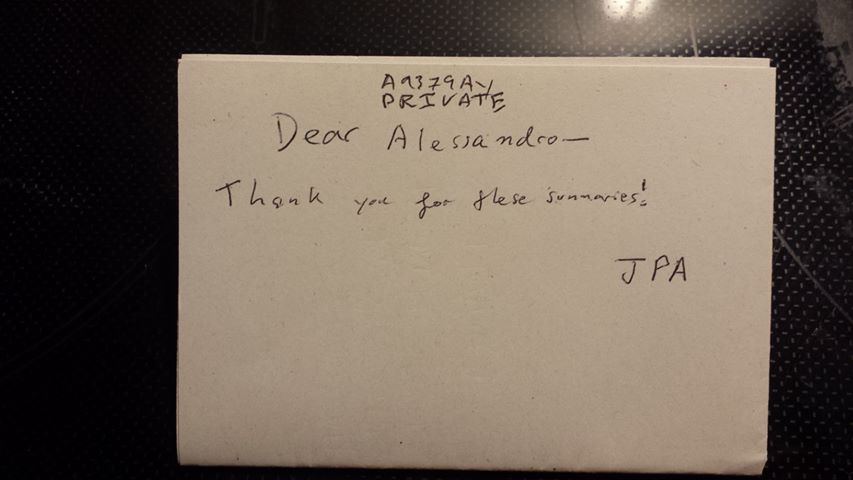 A9379AY
PRIVATE
Dear Alessandro—
Thank you for these summaries!
JPA